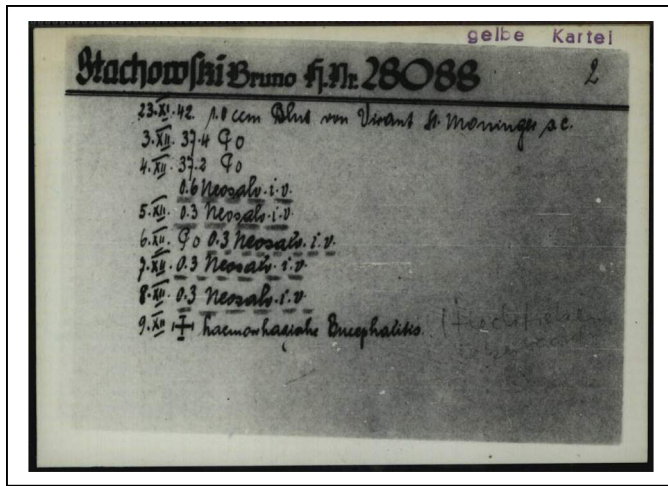 gelbe Kartei
Stachowski Bruno H.Nr. 28088 2
23.XI.42. 1.0 ccm Blut von Virant St. Monninger s.c.
3.XII. 37.4 Go
4.XII. 37.2 Go
0.6 Neosalv. i.v.
5.XII. 0.3 Neosalv. i.v.
6.XII. Go 0.3 Neosalv. i.v.
7.XII. 0.3 Neosalv. i.v.
8.XII. 0.3 Neosalv. i.v.
9.XII. haemorhagische Encephalitis.